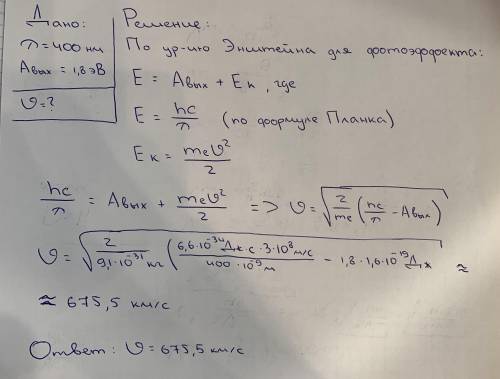 Дано:
λ = 400 нм
Aвых = 1,8 эВ
υ = ?
Решение:
По ур-ию Энштейна для фотоэффекта:
E = Aвых + Eк, где
E = hc/λ (по формуле Планка)
Eк = meυ²/2
hc/λ = Aвых + meυ²/2 => υ = √(2/me (hc/λ - Aвых))
υ = √(2/9,1·10⁻³¹ кг (6,6·10⁻³⁴ Дж·с·3·10⁸ м/с / 400·10⁻⁹ м - 1,8·1,6·10⁻¹⁹ Дж ≈
≈ 675,5 км/с
Ответ: υ = 675,5 км/с